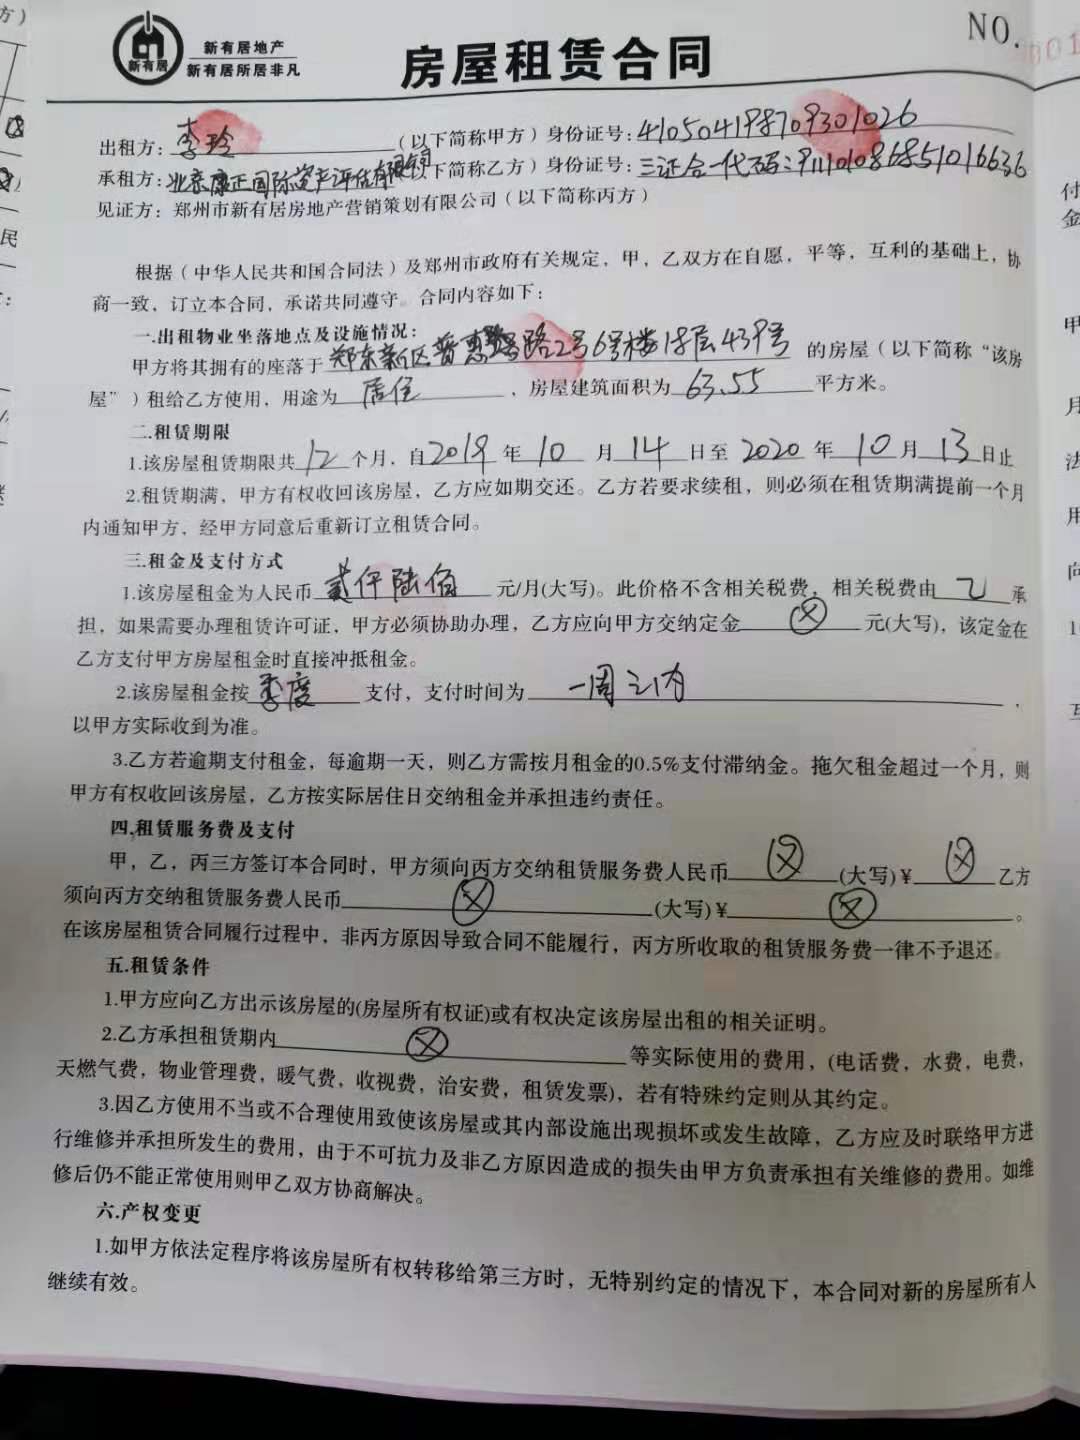 新有居地产
新有居所居非凡
新有居
房屋租赁合同
NO.
出租方：李玲（以下简称甲方）身份证号：410504198709301026
承租方：北京康正国际资产评估有限公司（以下简称乙方）身份证号：三证合一代码：911101086851016636
见证方：郑州市新有居房地产营销策划有限公司（以下简称丙方）
根据（中华人民共和国合同法）及郑州市政府有关规定，甲，乙双方在自愿，平等，互利的基础上，协
商一致，订立本合同，承诺共同遵守。合同内容如下：
一.出租物业坐落地点及设施情况：
甲方将其拥有的座落于郑东新区普惠路2号6号楼18层439号的房屋（以下简称“该房
屋”）租给乙方使用，用途为居住，房屋建筑面积为63.55平方米。
二.租赁期限
1.该房屋租赁期限共12个月，自2019年10月14日至2020年10月13日止
2.租赁期满，甲方有权收回该房屋，乙方应如期交还。乙方若要求续租，则必须在租赁期满提前一个月
内通知甲方，经甲方同意后重新订立租赁合同。
三.租金及支付方式
1.该房屋租金为人民币贰仟陆佰元/月(大写)。此价格不含相关税费，相关税费由乙承
担，如果需要办理租赁许可证，甲方必须协助办理，乙方应向甲方交纳定金 元(大写)，该定金在
乙方支付甲方房屋租金时直接冲抵租金。
2.该房屋租金按季度支付，支付时间为一周之内，
以甲方实际收到为准。
3.乙方若逾期支付租金，每逾期一天，则乙方需按月租金的0.5%支付滞纳金。拖欠租金超过一个月，则
甲方有权收回该房屋，乙方按实际居住日交纳租金并承担违约责任。
四.租赁服务费及支付
甲，乙，丙三方签订本合同时，甲方须向丙方交纳租赁服务费人民币 (大写)¥ 乙方
须向丙方交纳租赁服务费人民币 (大写)¥ 。
在该房屋租赁合同履行过程中，非丙方原因导致合同不能履行，丙方所收取的租赁服务费一律不予退还。
五.租赁条件
1.甲方应向乙方出示该房屋的(房屋所有权证)或有权决定该房屋出租的相关证明。
2.乙方承担租赁期内 等实际使用的费用，(电话费，水费，电费，
天燃气费，物业管理费，暖气费，收视费，治安费，租赁发票)，若有特殊约定则从其约定。
3.因乙方使用不当或不合理使用致使该房屋或其内部设施出现损坏或发生故障，乙方应及时联络甲方进
行维修并承担所发生的费用，由于不可抗力及非乙方原因造成的损失由甲方负责承担有关维修的费用。如维
修后仍不能正常使用则甲乙双方协商解决。
六.产权变更
1.如甲方依法定程序将该房屋所有权转移给第三方时，无特别约定的情况下，本合同对新的房屋所有人
继续有效。